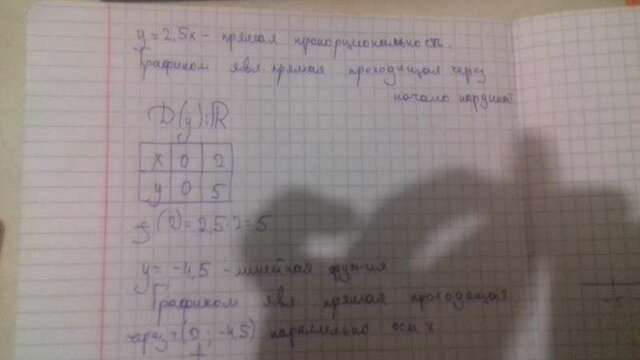 y = 2,5x - прямая пропорциональность.
Графиком явл. прямая проходящая через
начало координат
D(y): R
x 0 2
y 0 5
y(2) = 2,5·2 = 5
y = -4,5 - линейная функция
Графиком явл прямая проходящая
через (0; -4,5) параллельно оси x